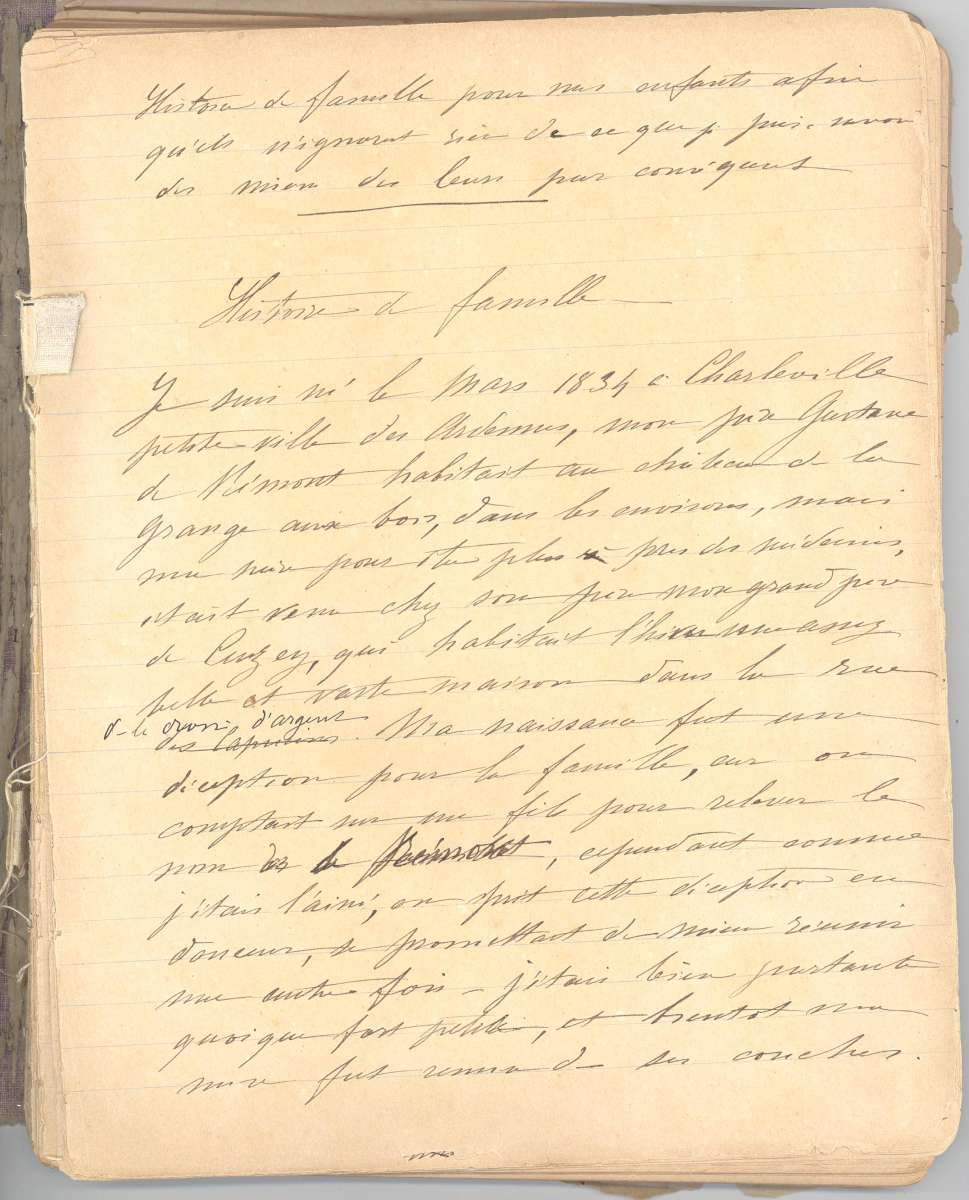 Histoire de famille pour mes enfants afin
qu'ils n'ignorent rien de ce que je puis savoir
des miens des leurs par conséquent
Histoire de famille
Je suis né le Mars 1834 à Charleville
petite ville des Ardennes, mon père Gustave
de Rémont habitait au château de la
grange aux bois, dans les environs, mais
ma mère pour être plus près des médecins,
était venu chez son père mon grand père
de Cuzey, qui habitait l'hiver une assez
belle et vaste maison dans la rue
d'argent
des Capucins. Ma naissance fut une
déception pour la famille, car on
comptait sur un fils pour relever le
nom de Rémont, cependant comme
j'étais l'ainé, on prit cette déception en
douceur, se promettant de mieux réussir
une autre fois - j'étais bien portante
quoique fort petite, et bientot ma
mère fut remise de ses couches.